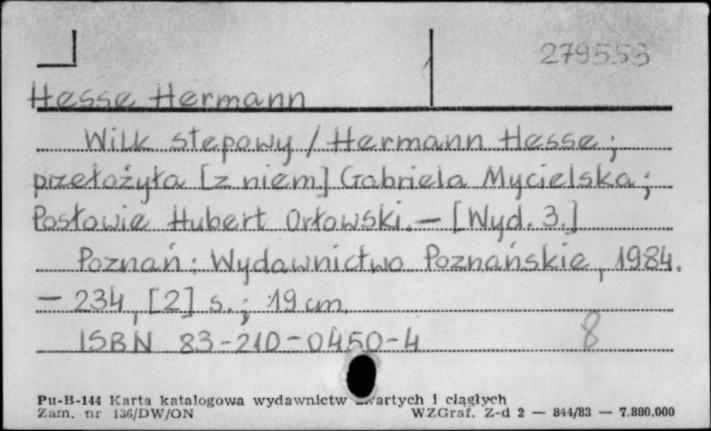 279553
Hesse Hermann
Wilk stepowy / Hermann Hesse ;
przełożyła [z niem.] Gabriela Mycielska ;
Posłowie Hubert Orłowski. — [Wyd. 3.]
Poznań : Wydawnictwo Poznańskie, 1984.
— 234, [2] s. ; 19 cm.
ISBN 83-210-0450-4
8
Pu-B-144 Karta katalogowa wydawnictw zwartych i ciągłych
Zam. nr 136/DW/ON WZGraf. Z-d 2 — 844/83 — 7.800.000